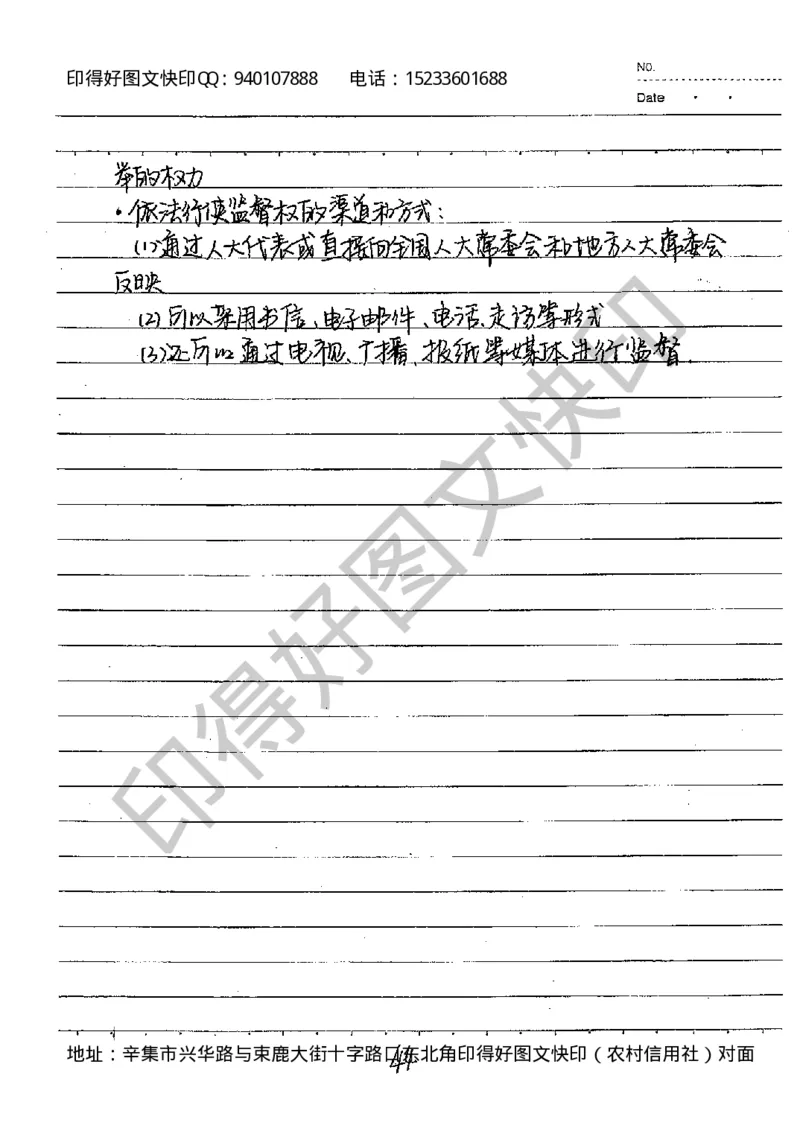 印得好图文快印QQ：940107888 电话：15233601688
No.
Date
举的权力
·依法行使监督权的渠道和方式：
(1)通过人大代表或直接向全国人大常委会和地方人大常委会
反映
(2)可以采用书信、电子邮件、电话、走访等形式
(3)还可以通过电视、广播、报纸等媒体进行监督.
印得好图文快印
地址：辛集市兴华路与束鹿大街十字路口东北角印得好图文快印（农村信用社）对面